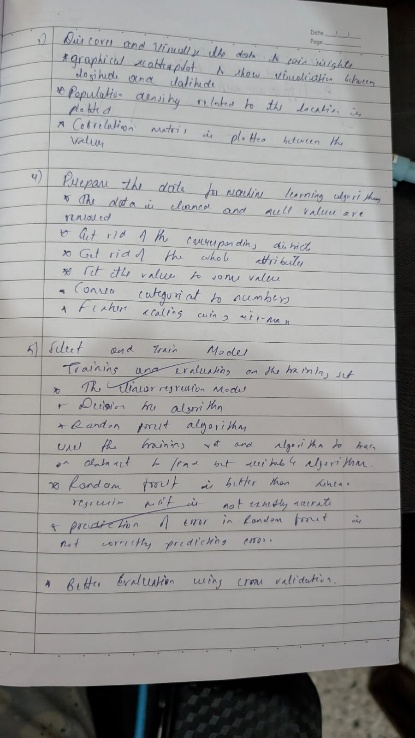 Date
Page
3) Discover and Visually the data to gain insights
* graphical scatterplot to show visualisation between
logitude and latitude
* Population density related to the location is
plotted
* Corelation matrix is plotted between the
values
4) Prepare the data for machine learning algorithm
* The data is cleaned and null value are
removed
* Get rid of the corresponding district
* Get rid of the whole attributes
* Set the value to some value
* Convert categorial to numbers
* Feature scaling using min-max
5) Select and Train Model
Training and evaluating on the training set
* The linear regression Model
* Decision tree algorithm
* Random forest algorithm
used the training set and algorithm to train
or to but suitable algorithm.
* Random forest is better than linear
regression is not exactly accurate
* prediction of error in Random forest is
not correctly predicting error.
* Better Evaluation using cross validation.